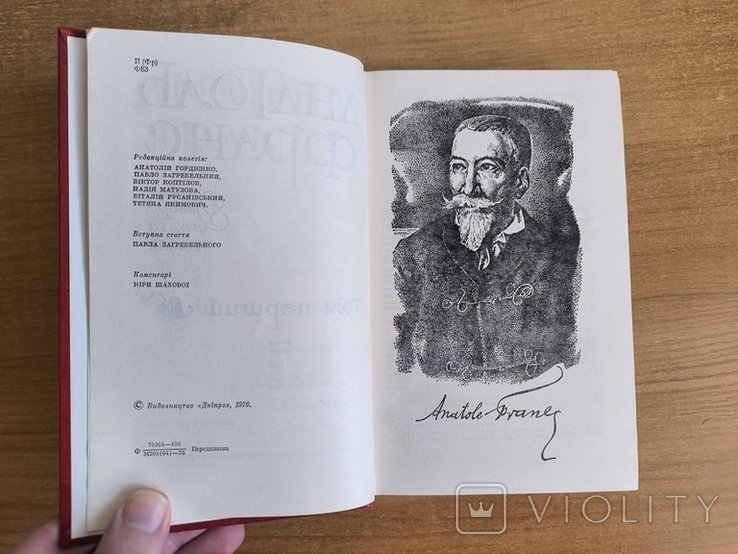 И (Фр)
Ф83
Редакційна колегія:
АНАТОЛІЙ ГОРДІЄНКО,
ПАВЛО ЗАГРЕБЕЛЬНИЙ,
ВІКТОР КОПТІЛОВ,
НАДІЯ МАТУЗОВА,
ВІТАЛІЙ РУСАНІВСЬКИЙ,
ТЕТЯНА ЯКИМОВИЧ.
Вступна стаття
ПАВЛА ЗАГРЕБЕЛЬНОГО
Коментарі
КІРИ ШАХОВОЇ
© Видавництво «Дніпро», 1976.
70304—156
Ф Передплатна
М205(04)—76
Anatole France
VIOLITY